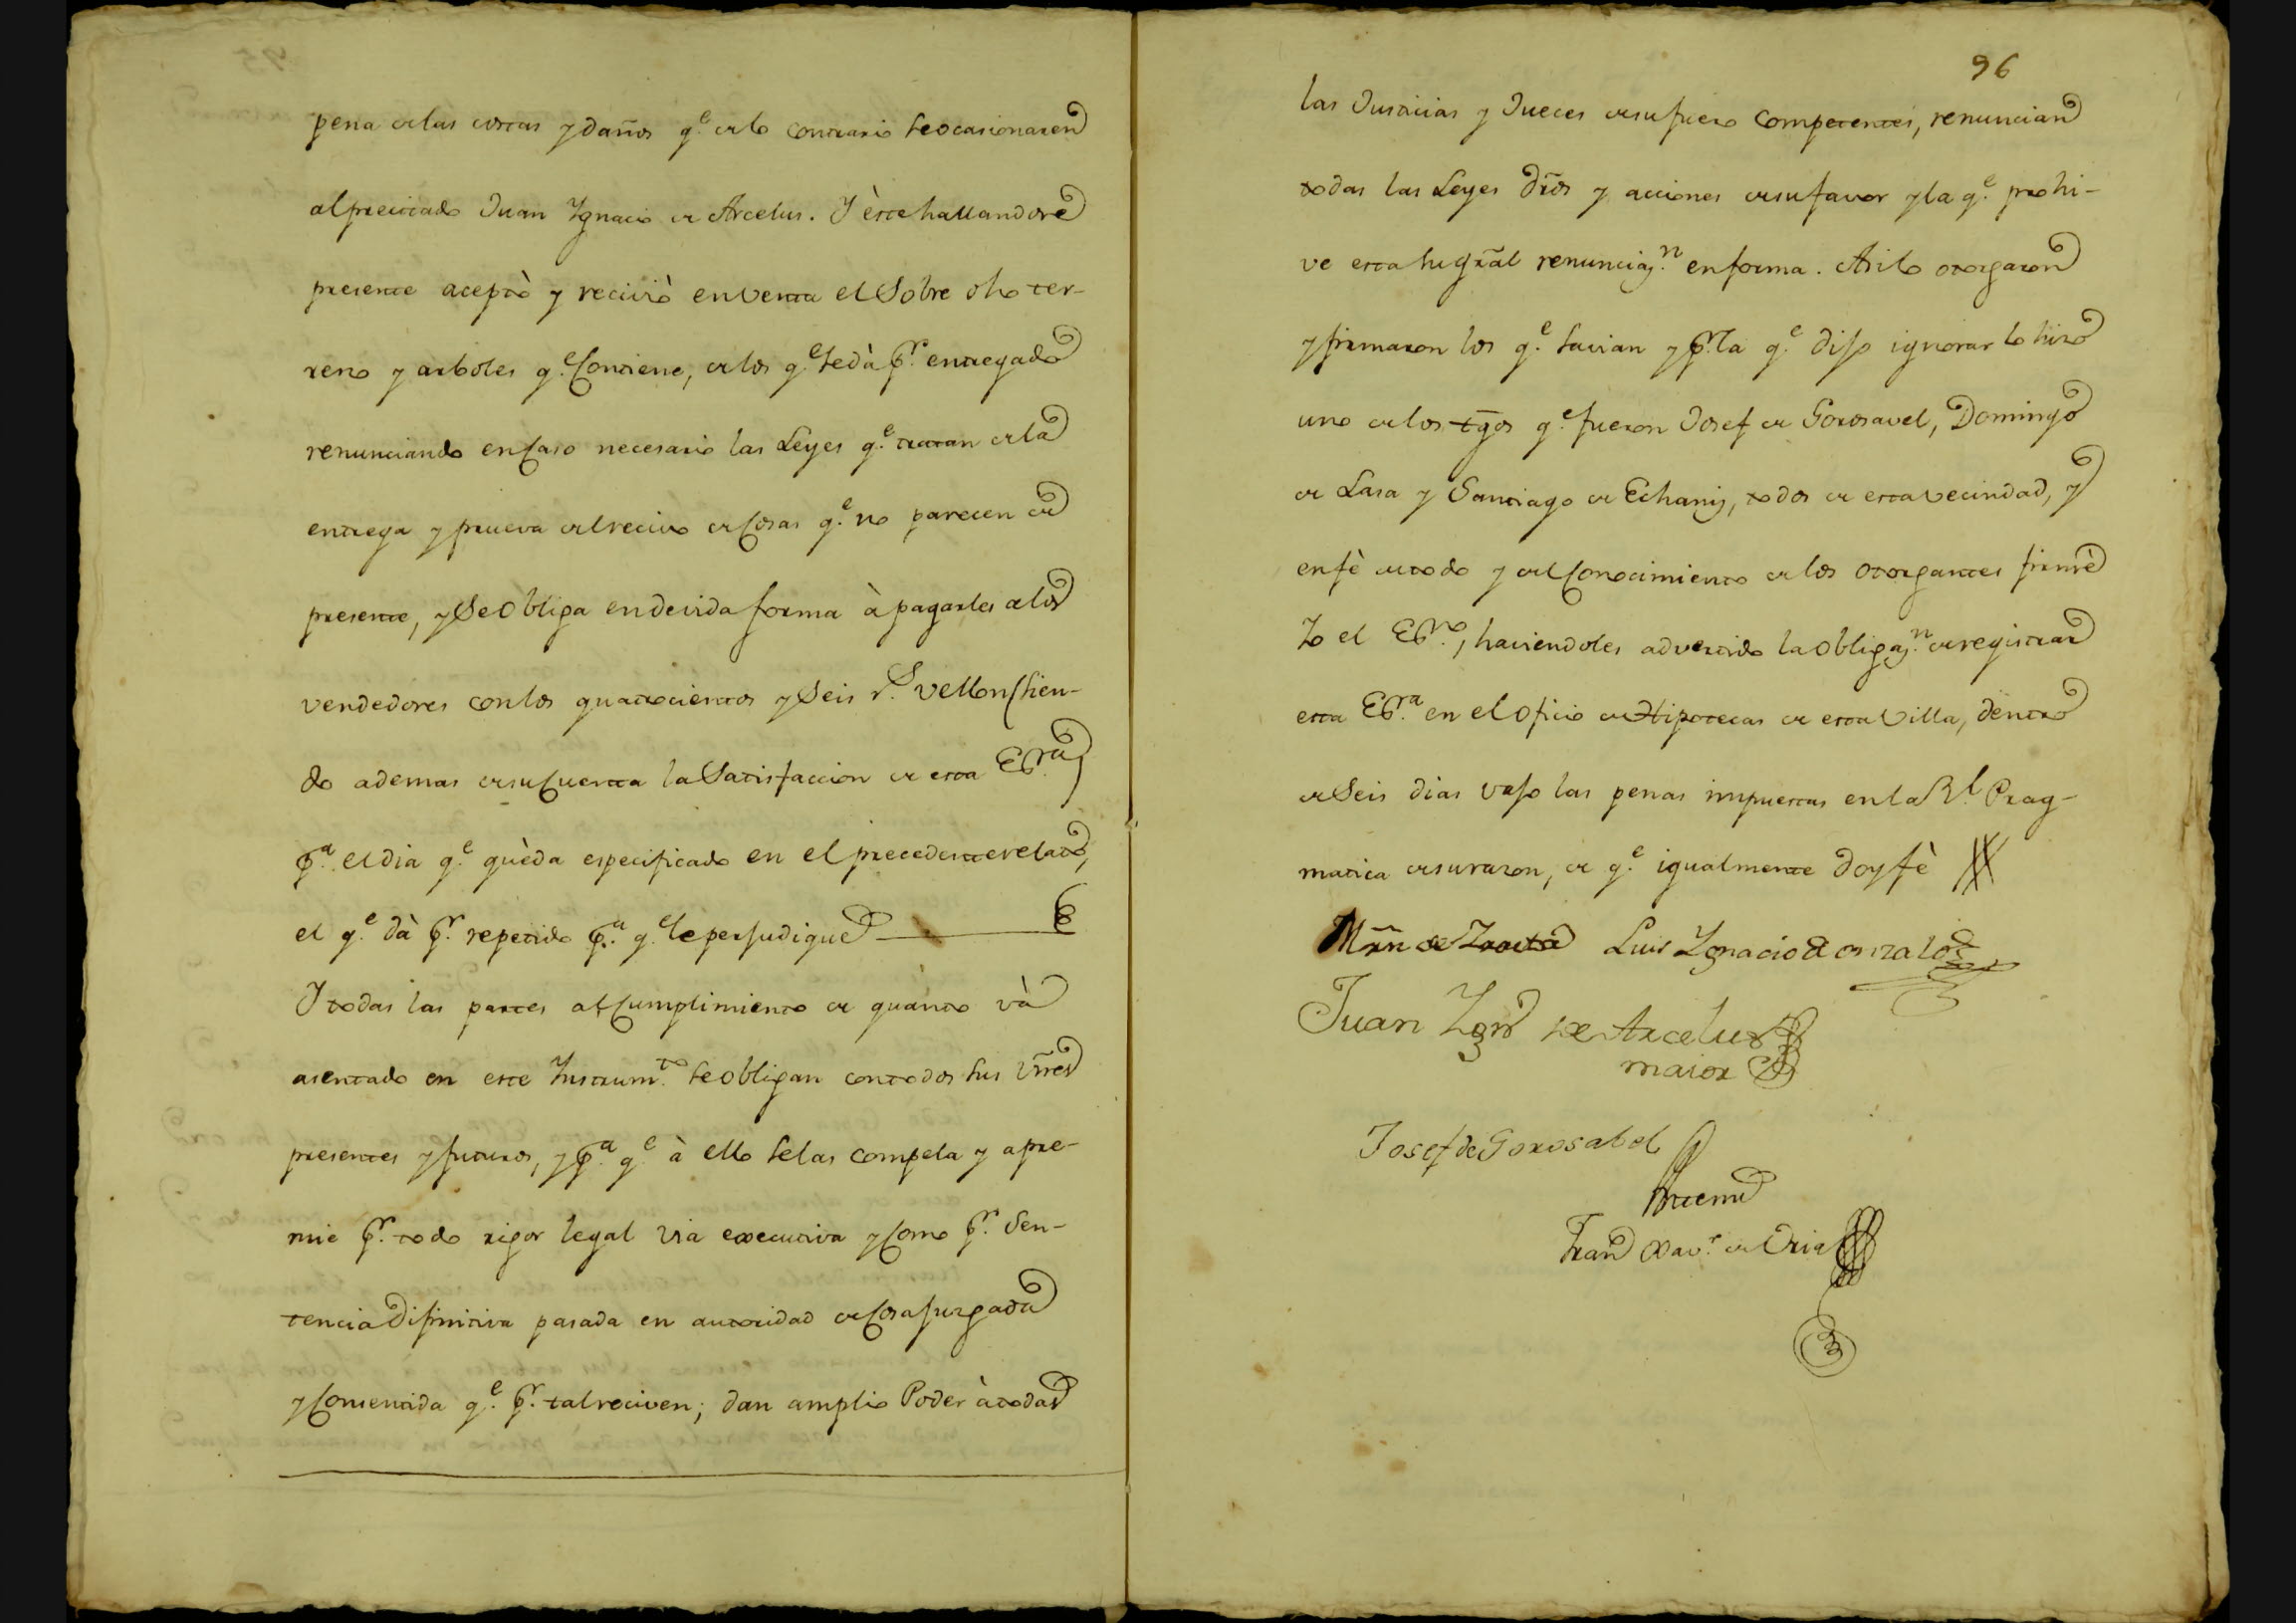 pena de las costas y daños q.e de lo contrario se ocasionaren
al precitado Juan Ygnacio de Arcelus. Y èste hallandose
presente aceptò y reciviò en venta el sobre dho ter-
reno y arboles q.e contiene, de los q.e se dà p.r entregado
renunciando en caso necesario las Leyes q.e tratan de la
entrega y prueva del recivo de cosas q.e no parecen de
presente, y se obliga en devida forma à pagarles a los
vendedores con los quatrocientos y seis r.s vellon sien-
do ademas de su cuenta la satisfaccion de esta Esc.ra
p.a el dia q.e quèda especificado en el precedente relato,
el q.e dà p.r repetido p.a q.e le perjudique
Y todas las partes al cumplimiento de quanto và
asentado en este Ynstrum.to se obligan con todos sus vñes
presentes y futuros, y p.a q.e à ello se las compela y apre-
mie p.r todo rigor legal via executiva y como p.r sen-
tencia difinitiva pasada en autoridad de cosa juzgada
y consentida q.e p.r tal reciven; dan amplio Poder à todas
96
las Justicias y Jueces de su fuero competentes, renuncian
todas las Leyes dr̃os y acciones de su favor y la q.e prohi-
ve esta su gr̃al renunciaz.n en forma. Asi lo otorgaron
y firmaron los q.e savian y p.r la q.e dijo ignorar lo hizo
uno de los tgõs q.e fueron Josef de Gorosavel, Domingo
de Lasa y Santiago de Echaniz, todos de esta vecindad, y
en fè de todo y del conocimiento de los otorgantes firmè
Yo el Es.no, haviendoles advertido la obligaz.n de registrar
esta Es.ra en el oficio de Hipotecas de esta Villa, dentro
de seis dias vajo las penas impuestas en la R.l Prag-
matica de su razon, de q.e igualmente doy fè
Mr̃n de Luis Ygnacio de
Juan Ygn.o de Arcelus
maior
Josef de Gorosabel
Antemi
Fran.co Xav.r de Oria